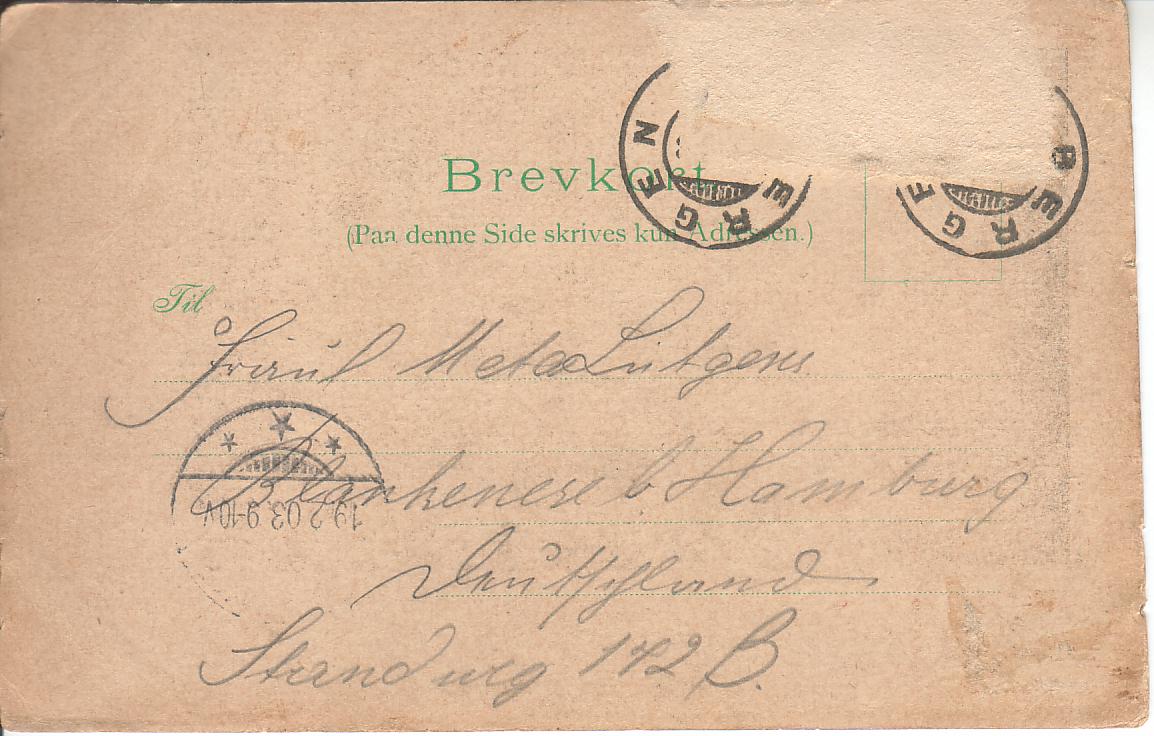 BERGEN
BERGEN
Brevkort
(Paa denne Side skrives kun Adressen.)
Til
Fräul Meta Lütgens
Blankenese b Hamburg
19.2.03. 9-10V
Deutschland
Strandweg 142 B.